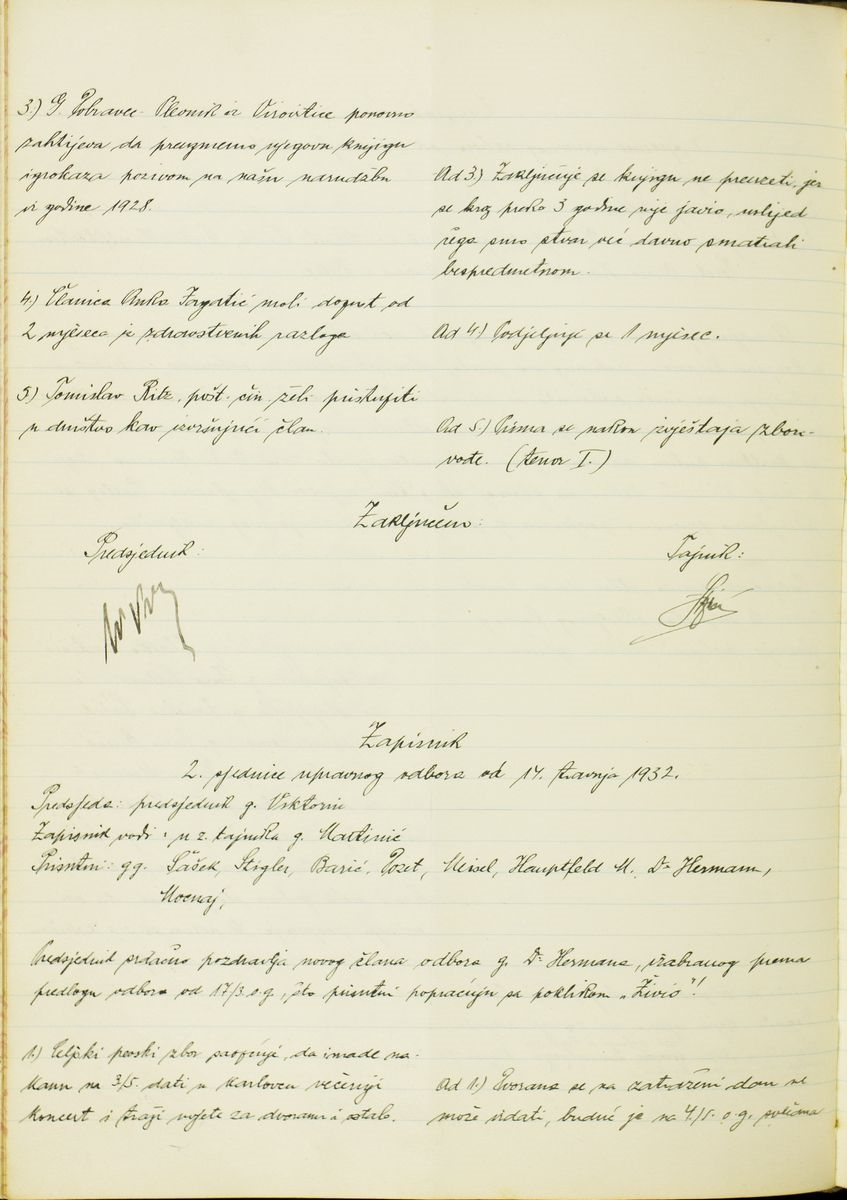 3.) G. Pobravec - Pleonik iz Virovitice ponovno
zahtijeva da preuzmemo njegovu knjigu
igrokaza pozivom na našu narudžbu
iz godine 1928.
Ad 3.) Zaključuje se knjigu ne preuzeti, jer
se kroz preko 3 godine nije javio, uslijed
čega smo stvar već davno smatrali
bespredmetnom.
4.) Članica Anka moli dopust od
2 mjeseca iz zdravstvenih razloga
Ad 4.) Podjeljuje se 1 mjesec.
5.) Tomislav Ritz, pošt. čin. želi pristupiti
u društvo kao izvršujući član.
Ad 5.) Prima se nakon izvještaja zboro-
vođe. (tenor I.)
Zaključeno:
Predsjednik:
Tajnik:
Zapisnik
2. sjednice upravnog odbora od 14. travnja 1932.
Predsjeda: predsjednik g. Viktorin
Zapisnik vodi: u z. tajnika g. Martinić
Prisutni: gg. Šašek, Stigler, Barić, Pozet, Meisel, Hauptfeld M. Dr Hermann,
Mocnaj,
Predsjednik srdačno pozdravlja novog člana odbora g. Dr Hermana, izabranog prema
predlogu odbora od 17/3. o.g., što prisutni popraćuju sa poklikom „Živio"!
1.) Celjski pevski zbor saopćuje, da imade na-
kanu na 3/5. dati u Karlovcu večernji
koncert i traži uvjete za dvoranu i ostalo.
Ad 1.) Dvorana se na zatraženi dan ne
može izdati, buduć je na 4/5. o.g. svečana